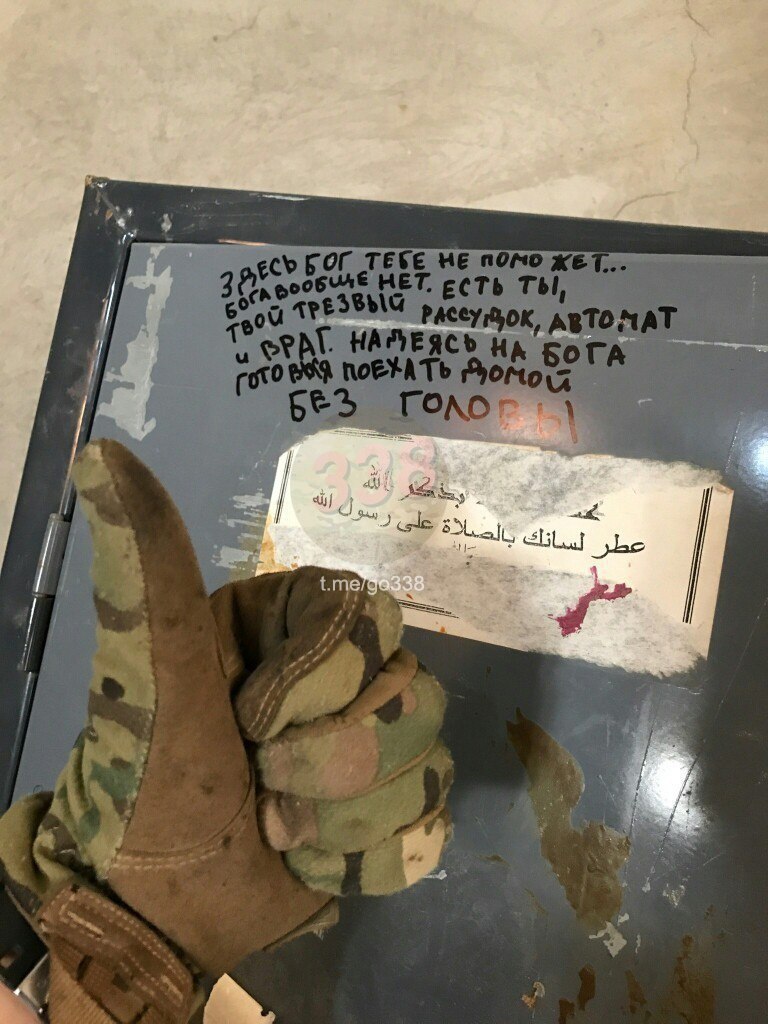 ЗДЕСЬ БОГ ТЕБЕ НЕ ПОМОЖЕТ...
БОГА ВООБЩЕ НЕТ. ЕСТЬ ТЫ,
ТВОЙ ТРЕЗВЫЙ РАССУДОК, АВТОМАТ
И ВРАГ. НАДЕЯСЬ НА БОГА
ГОТОВЬСЯ ПОЕХАТЬ ДОМОЙ
БЕЗ ГОЛОВЫ
338
بذكر الله
عطر لسانك بالصلاة على رسول الله
t.me/go338